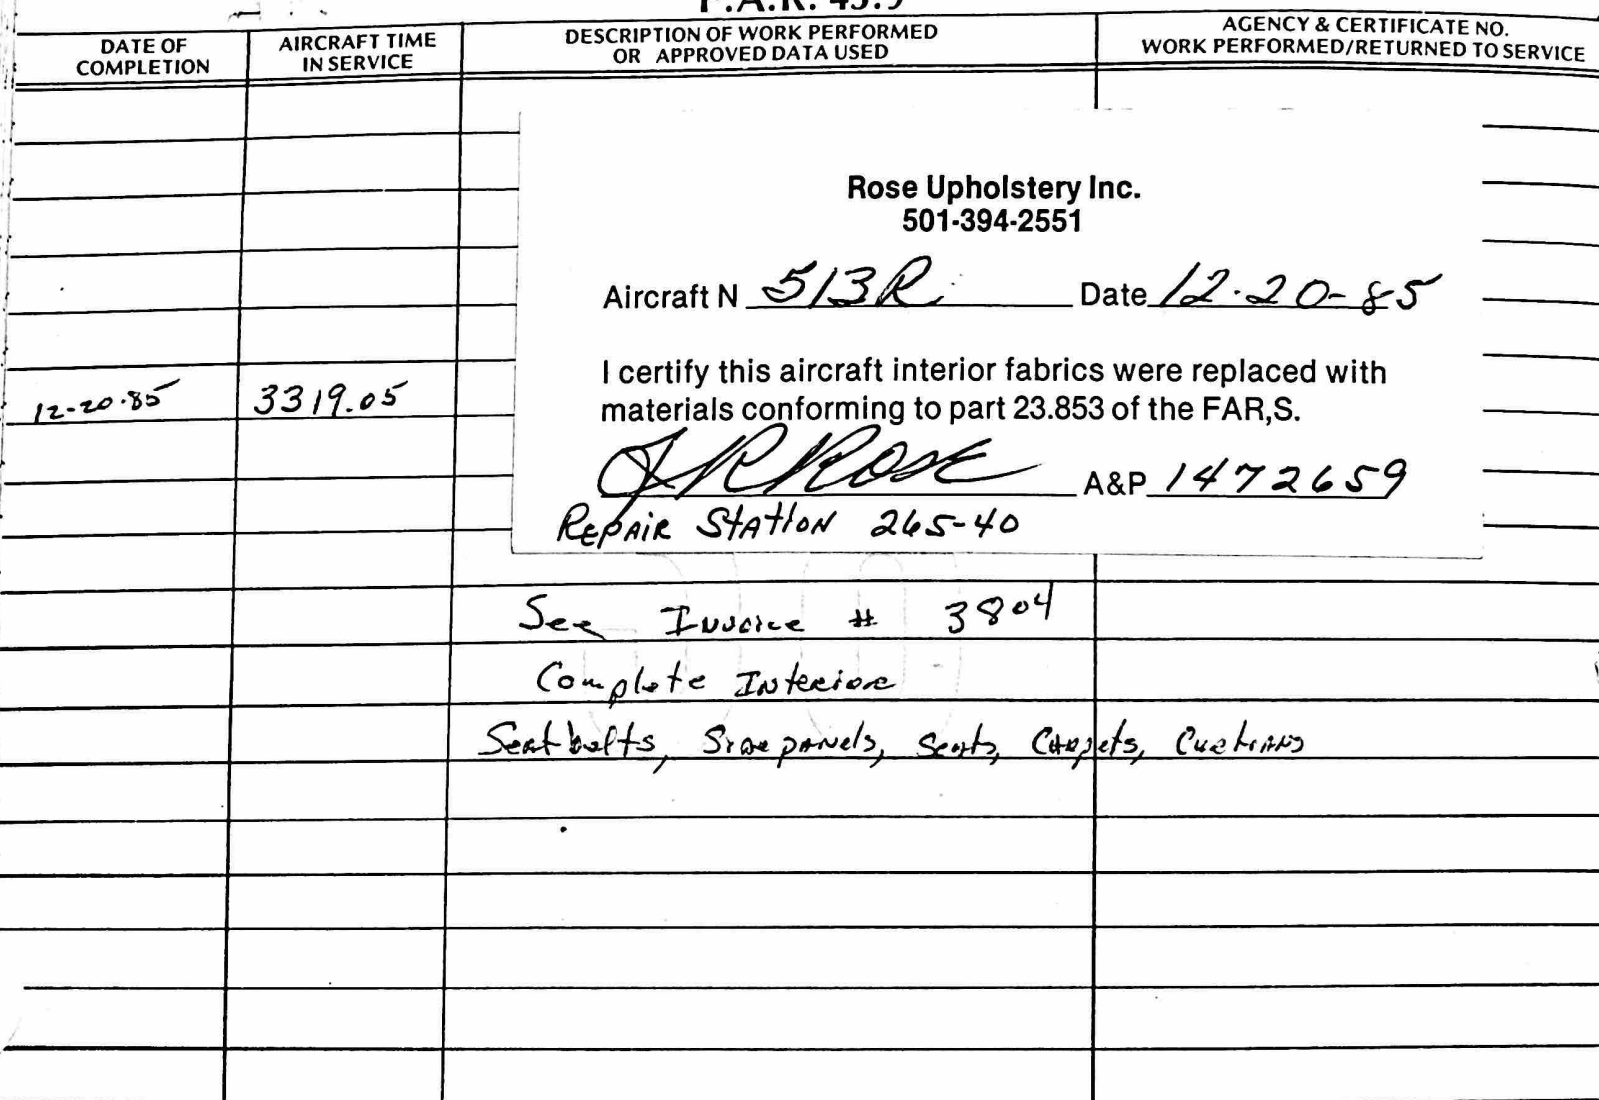 F.A.R. 43.9
DATE OF COMPLETION
AIRCRAFT TIME IN SERVICE
DESCRIPTION OF WORK PERFORMED OR APPROVED DATA USED
AGENCY & CERTIFICATE NO. WORK PERFORMED/RETURNED TO SERVICE
Rose Upholstery Inc.
501-394-2551
Aircraft N 513R Date 12-20-85
I certify this aircraft interior fabrics were replaced with
12-20-85 3319.05
materials conforming to part 23.853 of the FAR,S.
JR Rose A&P 1472659
Repair Station 265-40
See Invoice # 3804
Complete Interior
Seatbelts, Sidepanels, Seats, Carpets, Cushions